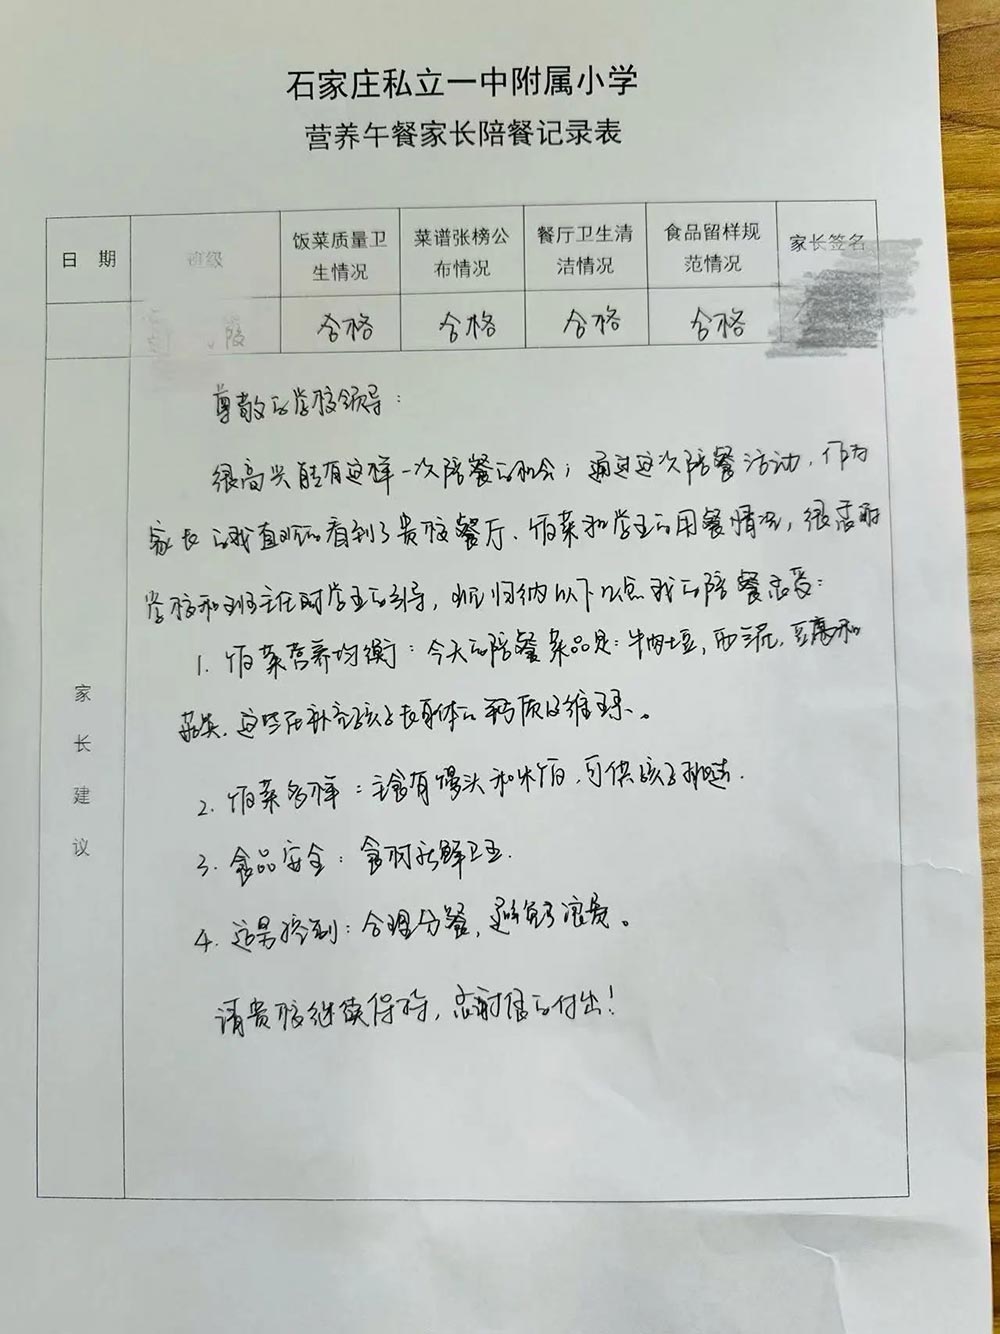 石家庄私立一中附属小学
营养午餐家长陪餐记录表
日 期 班级 饭菜质量卫生情况 菜谱张榜公布情况 餐厅卫生清洁情况 食品留样规范情况 家长签名
合格 合格 合格 合格
家长建议
尊敬的学校领导：
很高兴能有这样一次陪餐的机会；通过这次陪餐活动，作为
家长的我直观的看到了贵校餐厅、饭菜和学生的用餐情况，很感谢
学校和班主任对学生的引导，归纳以下几点我的陪餐感受：
1. 饭菜营养均衡：今天的陪餐菜品是：牛肉土豆，西兰花，豆腐和
菇类，这些在补充孩子长身体的钙质及维生素。
2. 饭菜多样：主食有馒头和米饭，可供孩子挑选.
3. 食品安全：食材新鲜卫生.
4. 适量控制：合理分餐，避免了浪费。
请贵校继续保持，感谢您的付出！